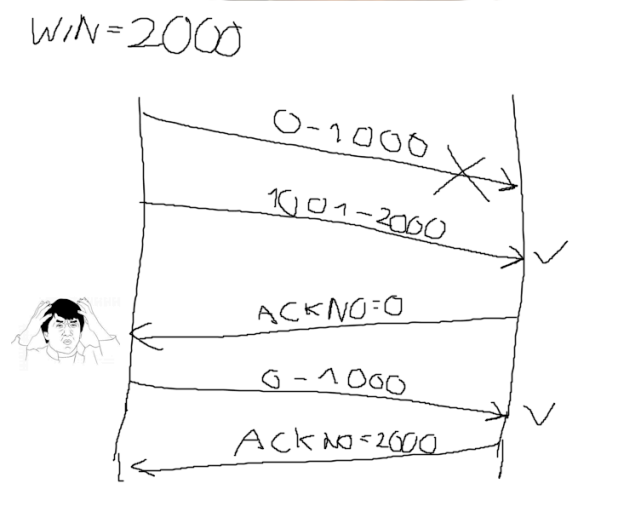 WIN=2000
0-1000
1001-2000
ACKNO=0
0-1000
ACKNO=2000